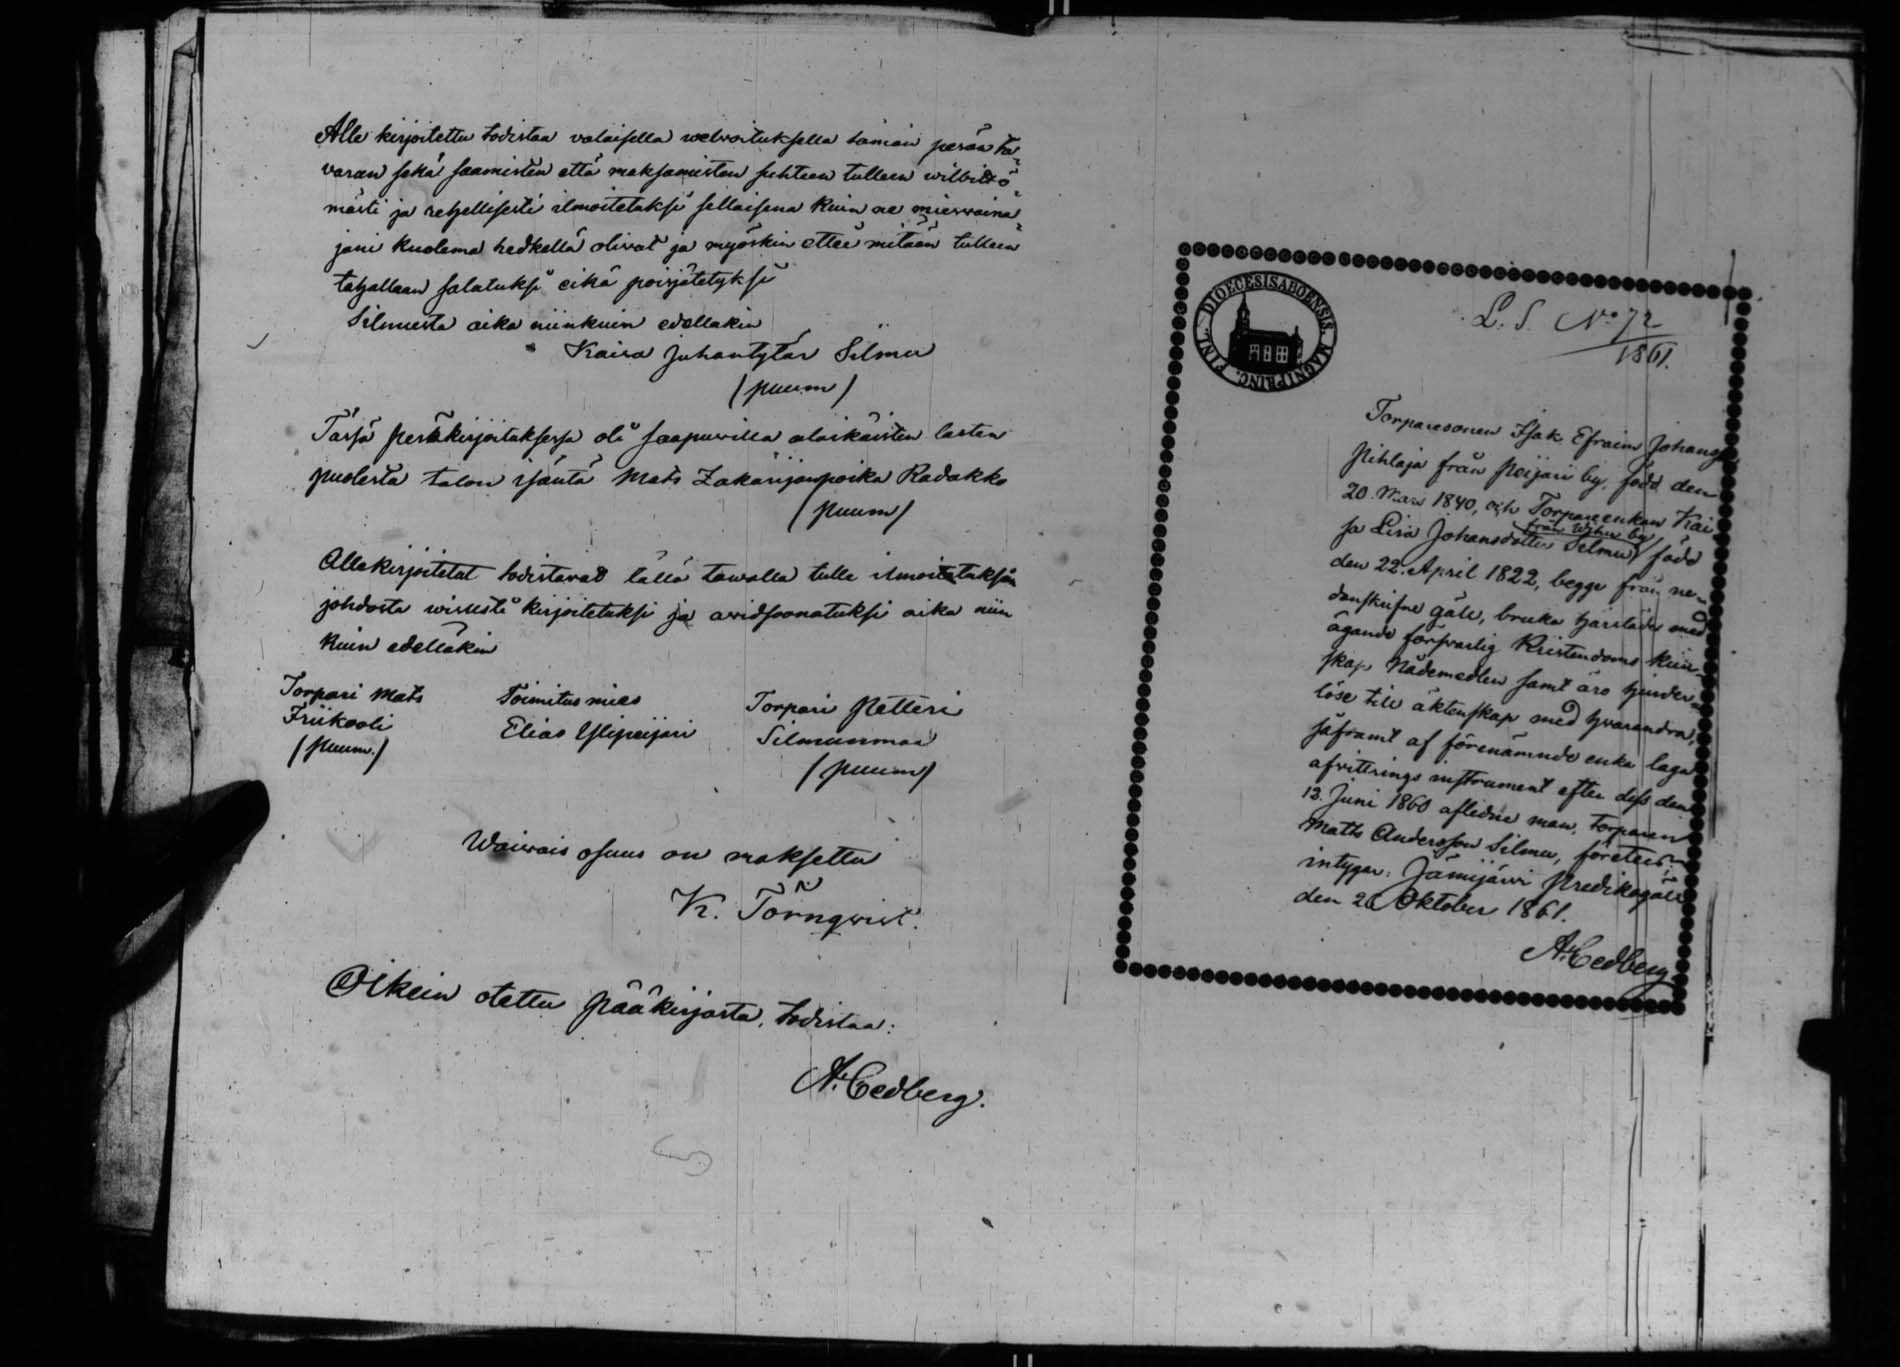 Alle kirjoitettu todistaa valaisella welvoituksella tämän perän ta-
varan sekä saamisten että maksamisten suhteen tulleen wilbittö-
mästi ja rehellisesti ilmoitetuksi sellaisena kuin ne miesvaina-
jani kuolema hedkellä olivat ja myöskin ettei mitään tulleen
tahallaan salatuksi eikä poisjätetyksi
Silmusta aika niinkuin edellakin
Kaisa Juhantytär Silmu
(puum)
Tässä peräkirjoituksessa oli saapuvilla alaikäisten lasten
puolesta talon isäntä Mats Zakarijanpoika Radakko
(puum)
Allekirjoitetut todistavat tällä tawalla tulle ilmoitetuksen
johdosta wisusti kirjoitetuksi ja arvidsoonatuksi aika niin
kuin edelläkin
Torpari Mats
Friikooli
(puum.)
Toimitusmies
Elias Ylipeijari
Torpari Petteri
Silmunmaa
(puum)
Waiwais osuus on maksettu
K. Törnqvist.
Oikein otettu pääkirjasta, todistaa:
A. Cedberg.
DIOECESIS ABOENSIS. MAGNI PRINC. FINL.
L. S. No 72
1861.
Torparesonen Isak Efraim Johans
Pihlaja från Peijari by, född den
20 Mars 1840, och Torpareenkan Kai-
från Wihu by
sa Lisa Johansdotter Silmu, född
den 22. April 1822, begge från ne-
danskrifne gäll, bruka HHrs Läder med
ägande försvarlig Kristendoms kun-
skap Nådemedlen samt äro hinder-
löse till äktenskap med hvarandra,
såframt af förenämnde enka laga
afvittrings instrument efter dess den
13. Juni 1860 aflidne man, torparen
Matts Andersson Silmu, företes:
intygar: Jämijärvi Predikogäll
den 20 Oktober 1861.
A. Cedberg